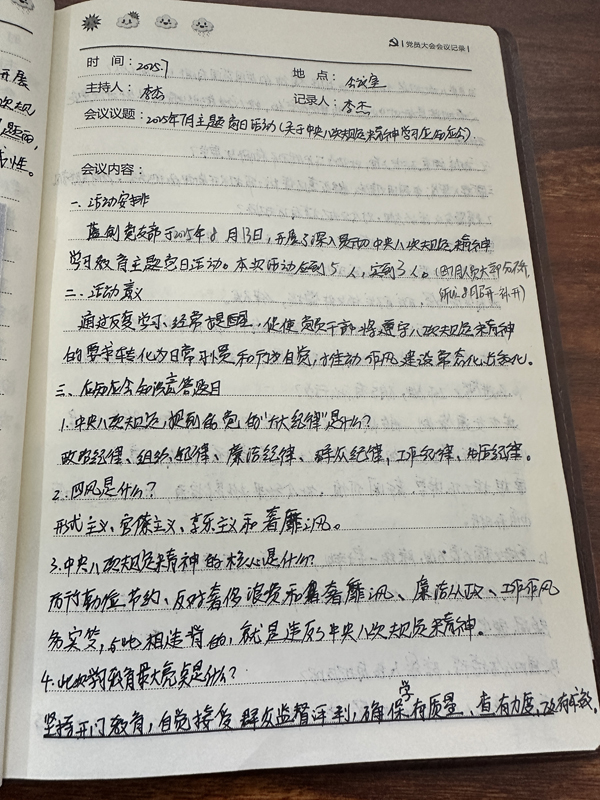 开展
次规
题面,
性。
党员大会会议记录
时 间: 2025.7
地 点: 会议室
主持人: 李杰
记录人: 李杰
会议议题: 2025年7月主题党日活动(关于中央八次规定精神学习应知应会)
会议内容:
一、活动安排
党支部于2025年8月13日,开展了深入贯彻中央八次规定精神
学习教育主题党日活动。本次活动应到5人,实到3人。(因7月人员大部分
所以8月召开补开)
二、活动意义
通过反复学习、经常提醒,促使党员干部将遵守八次规定精神
的要求转化为日常习惯和行为自觉,推动作风建设常态化长效化。
三、应知应会知识竞答题目
1.中央八次规定,提到的党的“六大纪律”是什么?
政治纪律、组织纪律、廉洁纪律、群众纪律、工作纪律、生活纪律。
2.四风是什么?
形式主义、官僚主义、享乐主义和奢靡之风。
3.中央八次规定精神的核心是什么?
厉行勤俭节约、反对奢侈浪费和奢靡之风、廉洁从政、工作作风
务实等,与此相违背的,就是违反了中央八次规定精神。
4.此次学习教育最大亮点是什么?
坚持开门教育,自觉接受群众监督评判,确保学有质量、查有力度、改有成效。